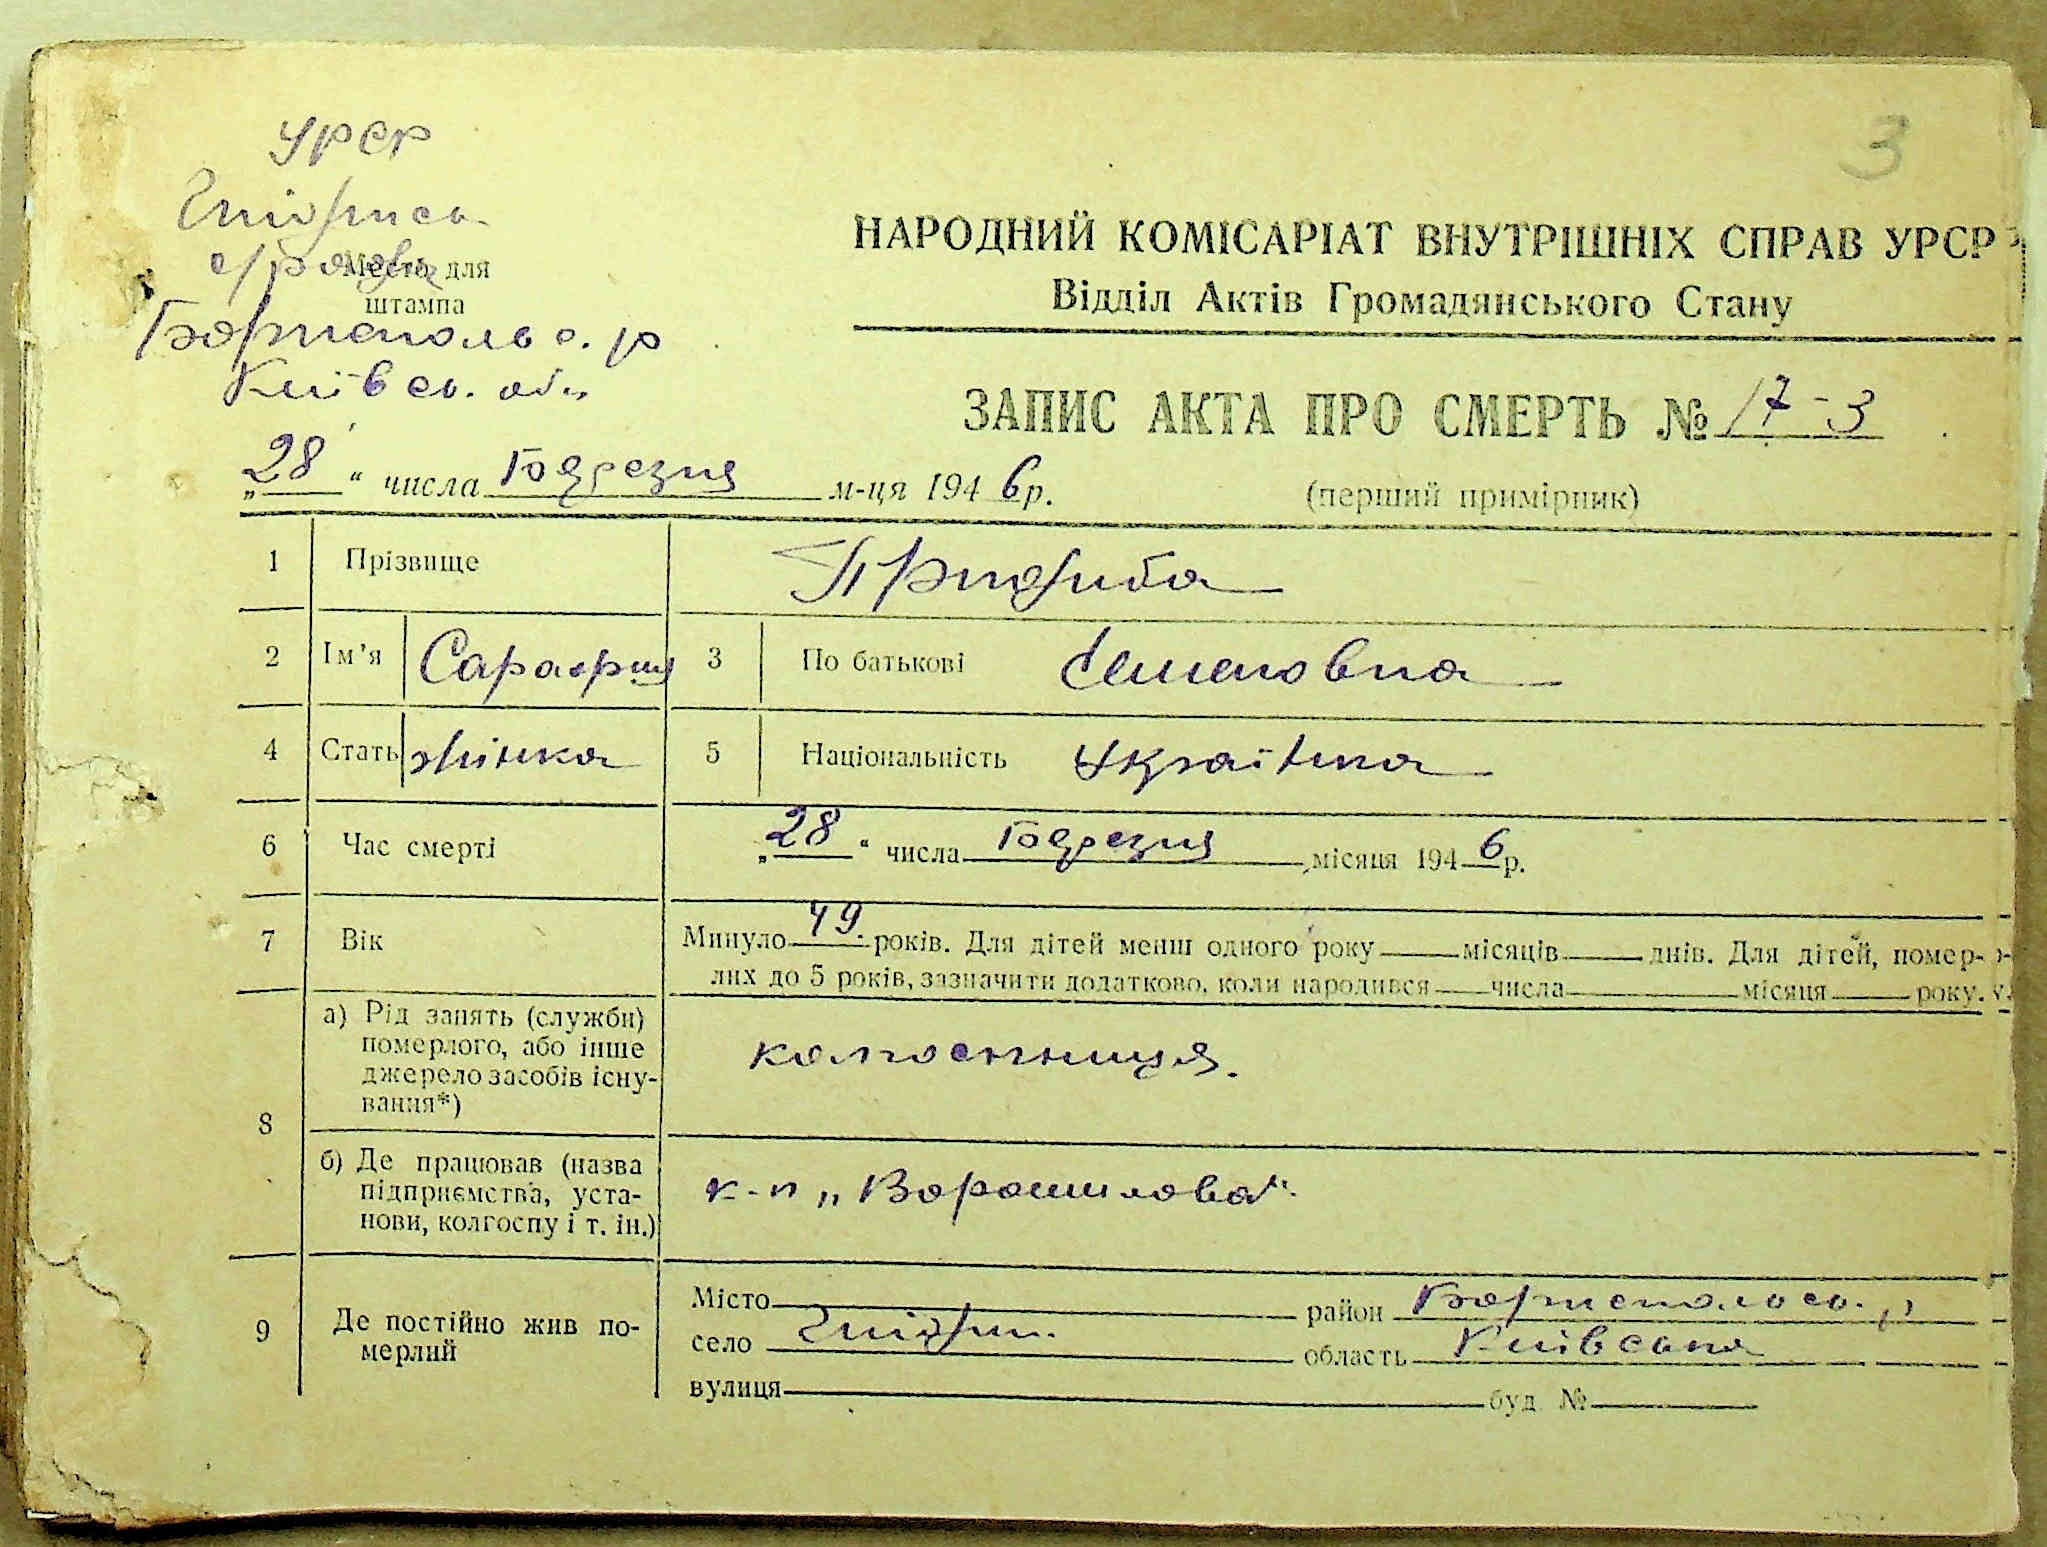 3
УРСР
Гнідинсь.
с/рада
Місто для
штампа
Бориспольс. р
Київсь. обл
НАРОДНИЙ КОМІСАРІАТ ВНУТРІШНІХ СПРАВ УРСР
Відділ Актів Громадянського Стану
ЗАПИС АКТА ПРО СМЕРТЬ № 17-3
„28“ числа Березня м-ця 1946р.
(перший примірник)
1 Прізвище
2 Ім'я 3 По батькові Семеновна
4 Стать жінка 5 Національність Українка
6 Час смерті „28“ числа Березня місяця 1946р.
7 Вік Минуло 49 років. Для дітей менш одного року місяців днів. Для дітей, помер-
лих до 5 років, зазначити додатково, коли народився числа місяця року.
8 а) Рід занять (служби)
померлого, або інше
джерело засобів існу-
вання*)
колгоспниця.
б) Де працював (назва
підприємства, уста-
нови, колгоспу і т. ін.)
к-п „Ворошилова“.
9 Де постійно жив по-
мерлий
Місто район Бориспольсь.
село Гнідин. область Київська
вулиця буд №